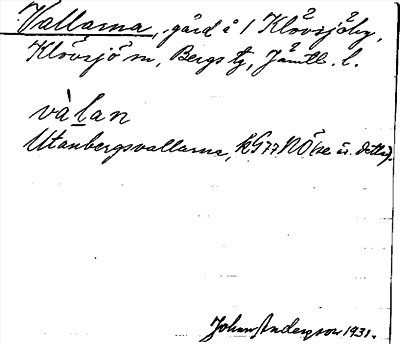 Vallarna, gård å 1 Klövsjöby,
Klövsjö sn, Bergs tg, Jämtl. l.
vàlan
Utanbergsvallarna, kG77NÖ (se ü. detta).
Johan Anderson 1931.